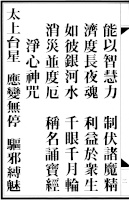 能以智慧力　制伏諸魔精
濟度長夜魂　利益於眾生
如彼銀河水　千眼千月輪
消災並度厄　稱名誦寶經
淨心神咒
太上台星　應變無停　驅邪縛魅